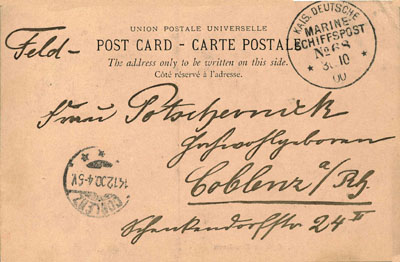 UNION POSTALE UNIVERSELLE
Feld- POST CARD - CARTE POSTALE
The address only to be written on this side.
Côté réservé à l'adresse.
KAIS. DEUTSCHE
MARINE-
SCHIFFSPOST
No 68
* 30.10 *
00
Frau Potschernick
Hochwohlgeboren
Coblenz a/Rh.
Schenkendorfstr 24 II
14.12.00.4-5N.
COBLENZ